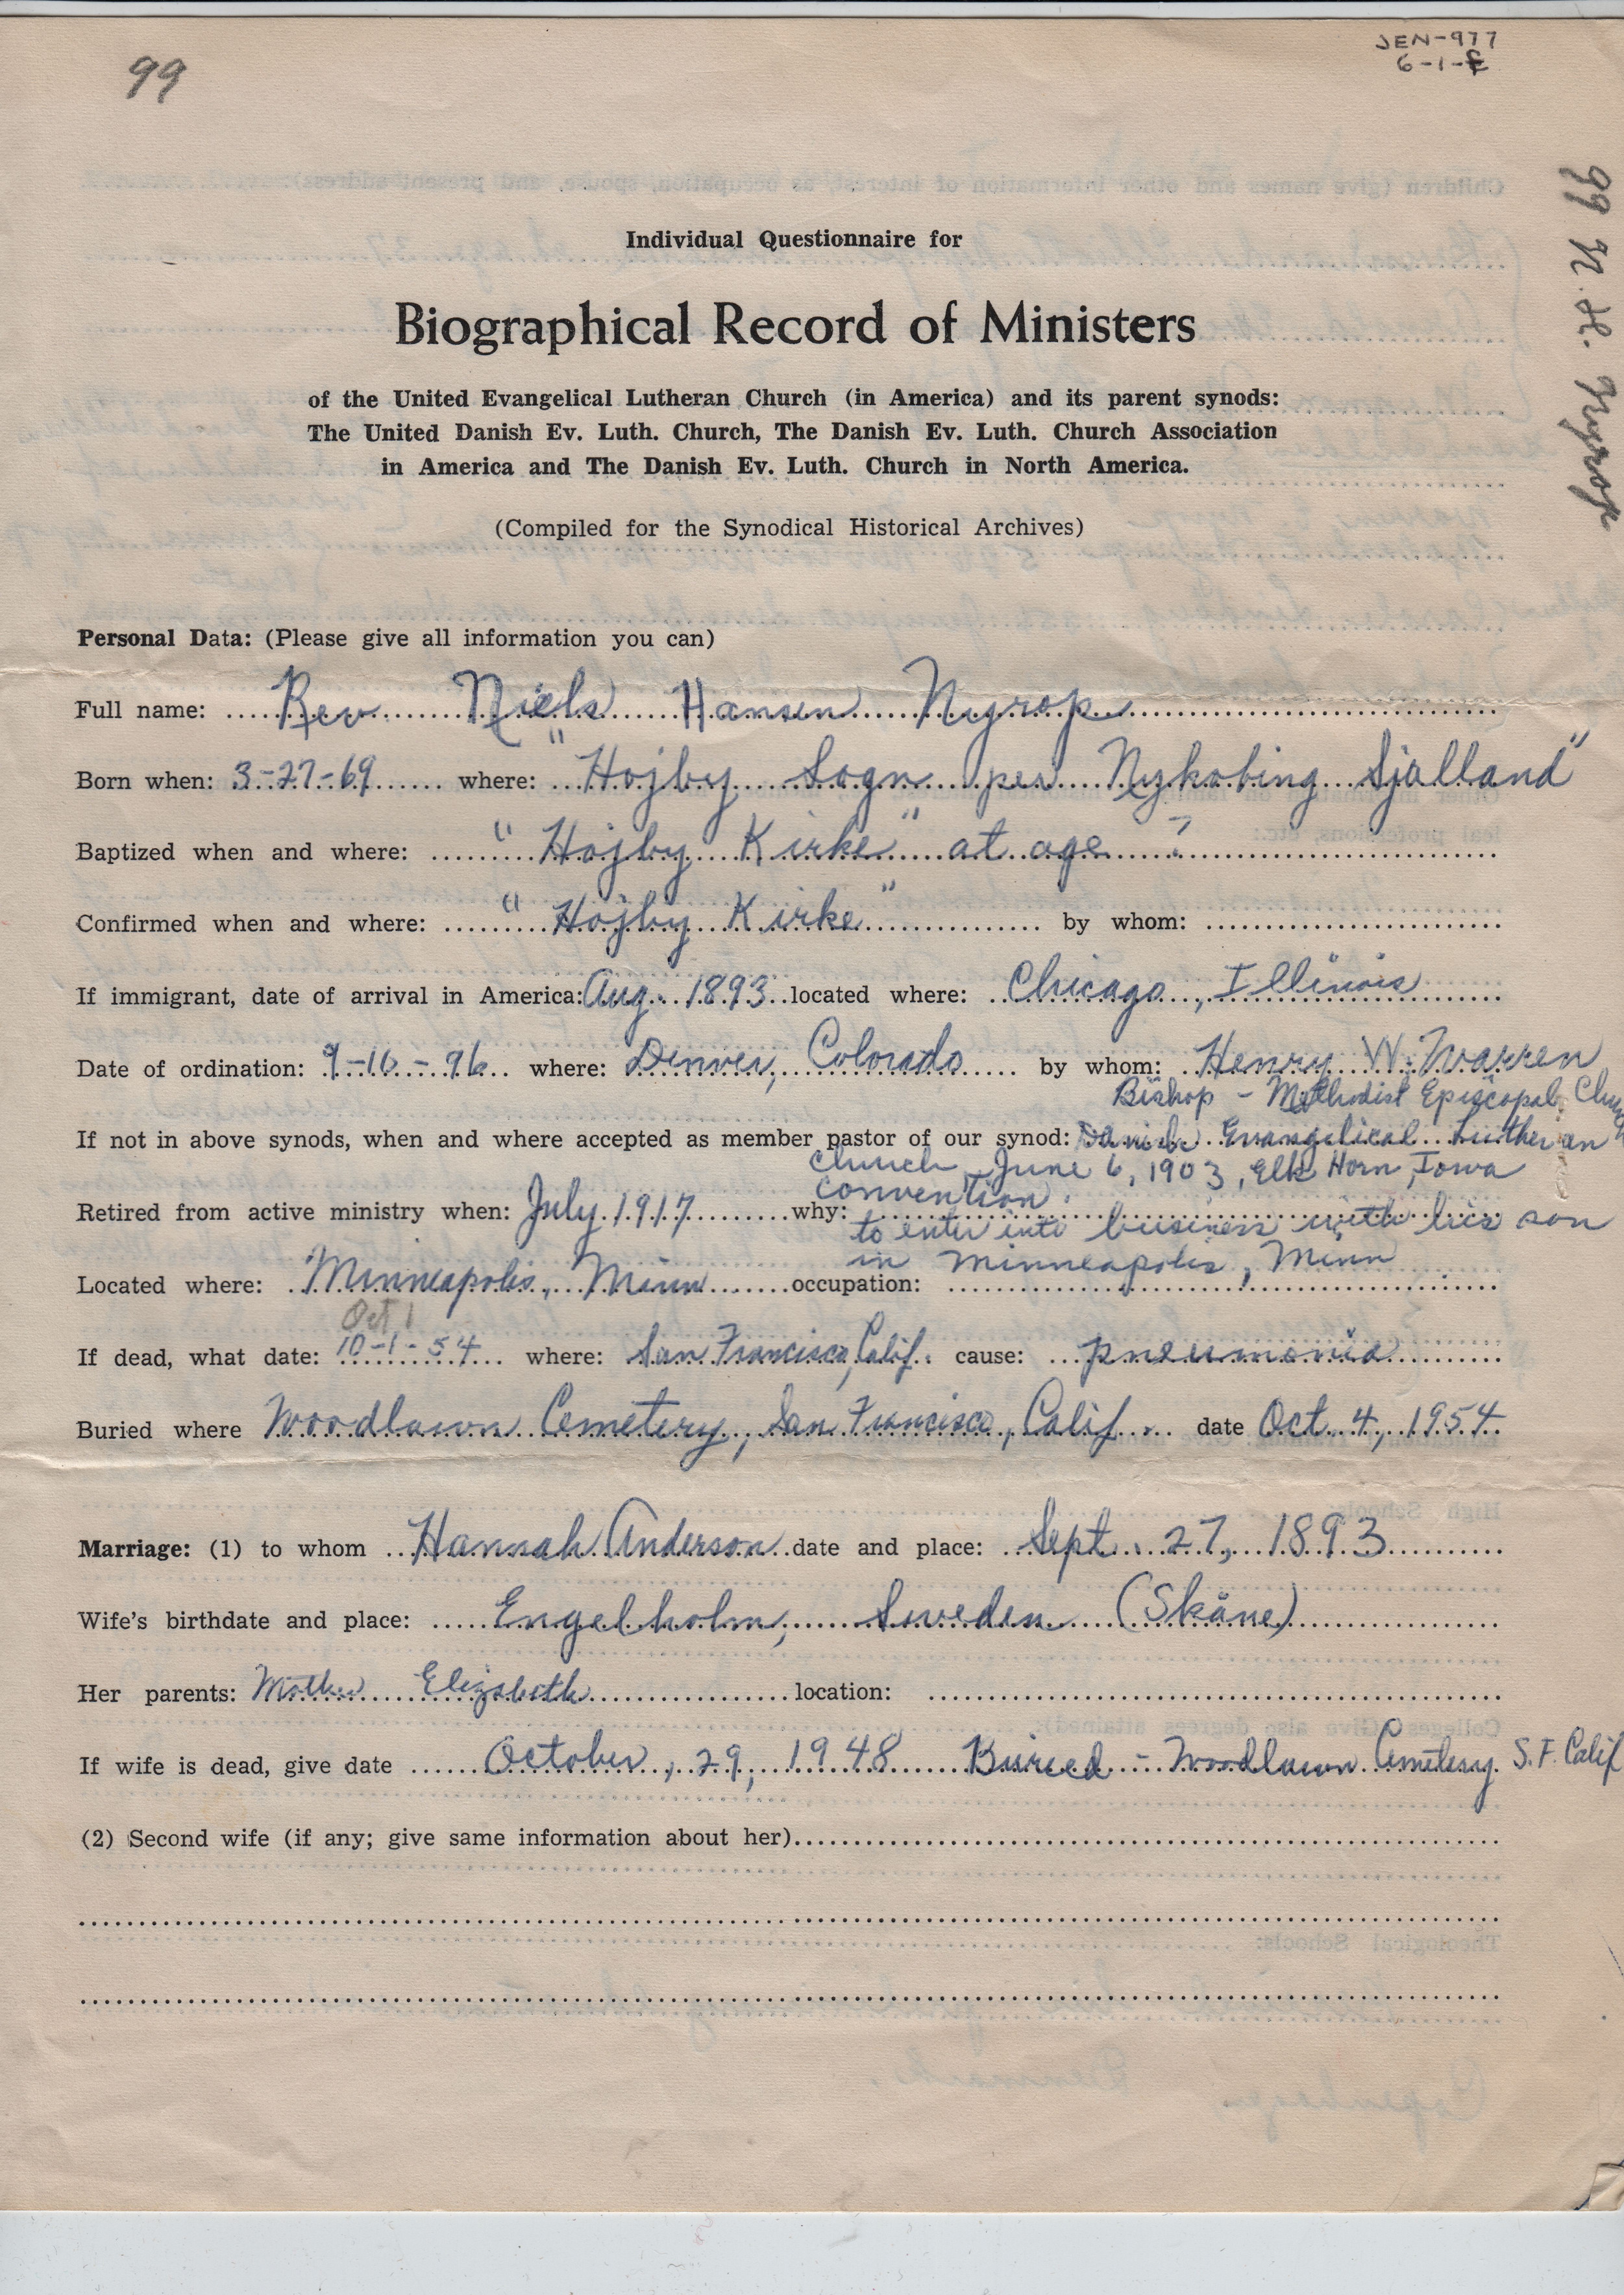 JEN-977
99
6-1-F
99 N. H. Nyrop
Individual Questionnaire for
Biographical Record of Ministers
of the United Evangelical Lutheran Church (in America) and its parent synods:
The United Danish Ev. Luth. Church, The Danish Ev. Luth. Church Association
in America and The Danish Ev. Luth. Church in North America.
(Compiled for the Synodical Historical Archives)
Personal Data: (Please give all information you can)
Full name: Rev Niels Hansen Nyrop
Born when: 3-27-69 where: "Hojby Sogn per Nykobing Sjalland"
Baptized when and where: "Hojby Kirke" at age ?
Confirmed when and where: "Hojby Kirke" by whom:
If immigrant, date of arrival in America: Aug. 1893 located where: Chicago, Illinois
Date of ordination: 9-10-96 where: Denver, Colorado by whom: Henry W. Warren
Bishop - Methodist Episcopal Church
If not in above synods, when and where accepted as member pastor of our synod: Danish Evangelical Lutheran
Church, June 6, 1903, Elk Horn, Iowa
convention.
Retired from active ministry when: July 1917 why:
to enter into business with his son
in Minneapolis, Minn
Located where: Minneapolis, Minn occupation:
Oct 1
If dead, what date: 10-1-54 where: San Francisco, Calif. cause: pneumonia
Buried where Woodlawn Cemetery, San Francisco, Calif. date Oct. 4, 1954
Marriage: (1) to whom Hannah Anderson date and place: Sept. 27, 1893
Wife's birthdate and place: Engelholm, Sweden (Skåne)
Her parents: Mother Elizabeth location:
If wife is dead, give date October, 29, 1948 Buried - Woodlawn Cemetery S.F. Calif
(2) Second wife (if any; give same information about her)